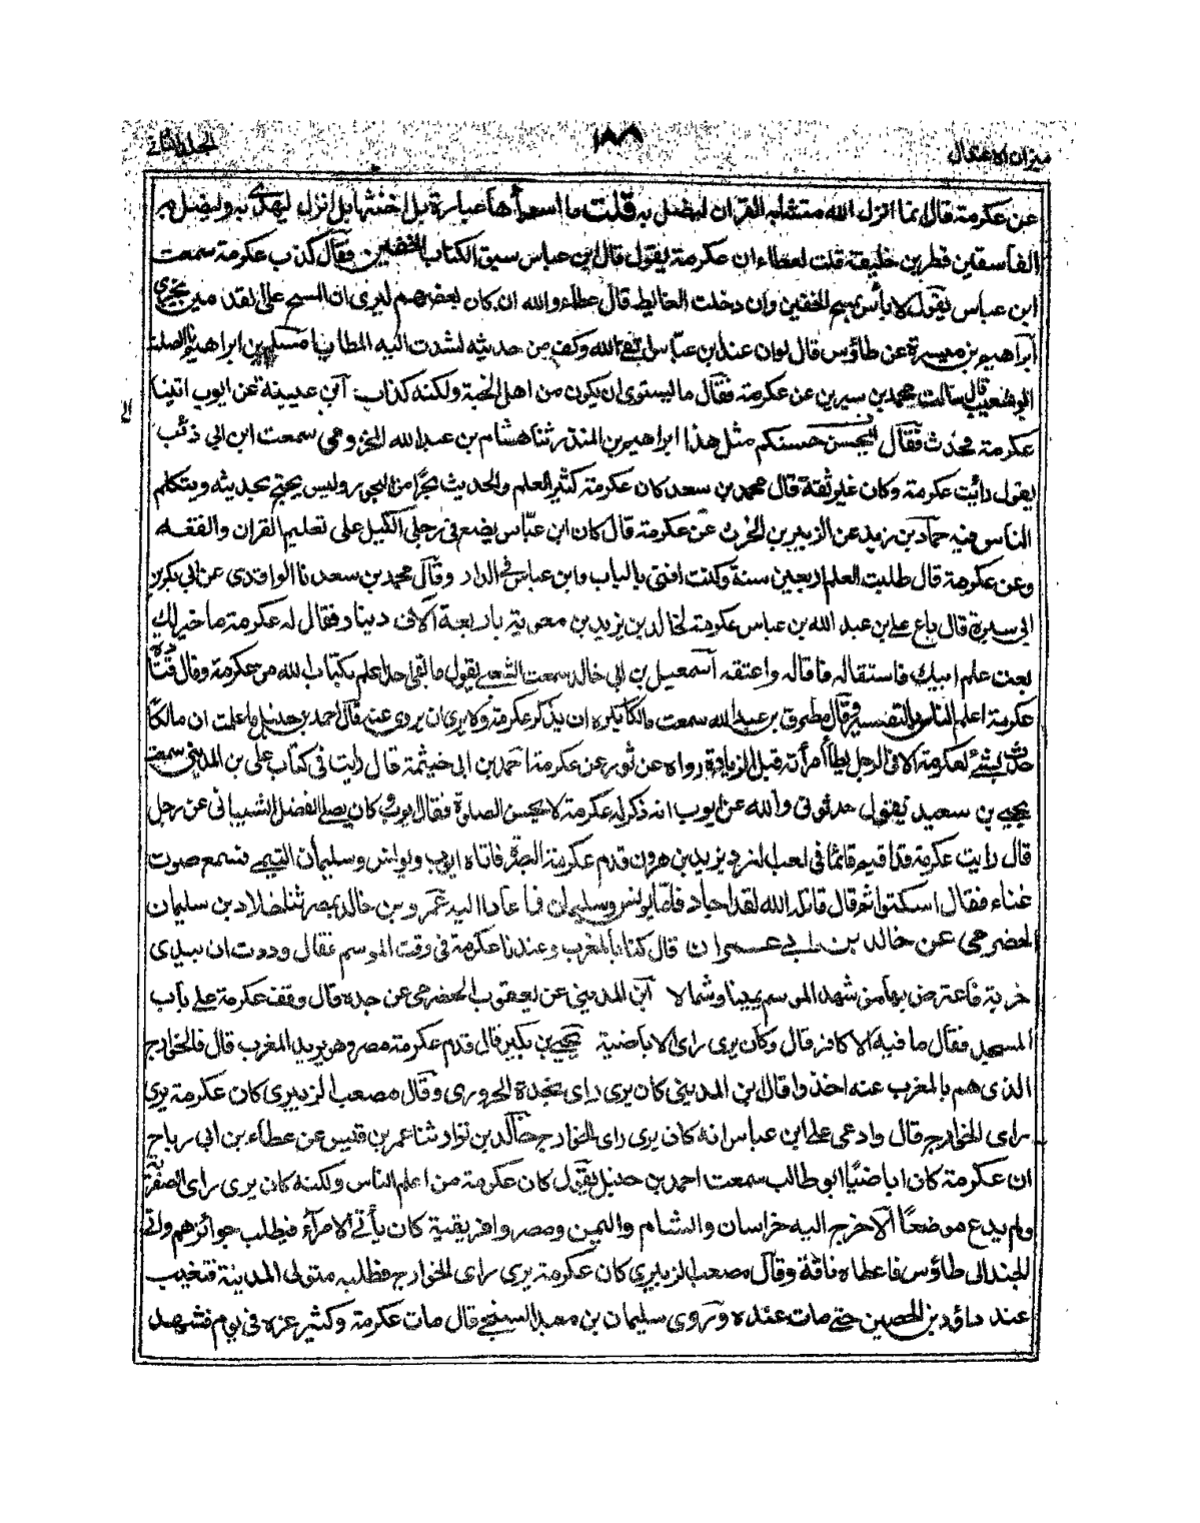 ميزان الاعتدال
١٨٨
الجلد الثاني
عن عكرمة قال انما انزل الله متشابه القران ليضل به قلت ما اسوأها عبارة بل اخبثها بل انزل ليهدي به وليضل به
الفاسقين فطر بن خليفة قلت لعطاء ان عكرمة يقول قال ابن عباس سبق الكتاب الخفين فقال كذب عكرمة سمعت
ابن عباس يقول لا بأس بمسح الخفين وان دخلت الغايط قال عطاء والله ان كان بعضهم ليرى ان المسح على القدمين يجزي
ابراهيم بن ميسرة عن طاؤس قال لو ان عبد ابن عباس اتقى الله وكف من حديثه لشدت اليه المطايا مسلم بن ابراهيم نا الصلت
ابو شعيب قال سالت محمد بن سيرين عن عكرمة فقال ما يسوءني ان يكون من اهل الجنة ولكنه كذاب ابن عيينة عن ايوب اتينا
عكرمة فحدث فقال ايحسن حسنكم مثل هذا ابراهيم بن المنذر ثنا هشام بن عبد الله المخزومي سمعت ابن ابي ذئب
يقول رأيت عكرمة وكان غير ثقة قال محمد بن سعد كان عكرمة كثير العلم والحديث بحرا من البحور وليس يحتج بحديثه ويتكلم
الناس فيه حماد بن زيد عن الزبير بن الخرت عن عكرمة قال كان ابن عباس يضع في رجلي الكبل على تعليم القران والفقه
وعن عكرمة قال طلبت العلم اربعين سنة وكنت افتي بالباب وابن عباس في الدار وقال محمد بن سعد نا الواقدي عن ابي بكر بن
ابي سبرة قال باع علي بن عبد الله بن عباس عكرمة لخالد بن يزيد بن معوية باربعة آلاف دينار فقال له عكرمة ما خير لك
بعت علم ابيك فاستقاله فاقاله واعتقه اسمعيل بن ابي خالد سمعت الشعبي يقول ما بقي احد اعلم بكتاب الله من عكرمة وقال قتادة
عكرمة اعلم الناس بالتفسير وقال مطرف بن عبد الله سمعت مالكا يكره ان يذكر عكرمة ولا يرى ان يروى عنه قال احمد بن حنبل ما علمت ان مالكا
حدث بشئ لعكرمة الا في الرجل يطأ امرأته قبل الزيارة رواه عن ثور عن عكرمة احمد بن ابي خيثمة قال رايت في كتاب علي بن المديني سمعت
يحيى بن سعيد يقول حدثوني والله عن ايوب انه ذكر له عكرمة لا يحسن الصلوة فقال ايوب وكان يصلي الفضل الشيباني عن رجل
قال رايت عكرمة قد اقيم قائما في لعب النرد يزيد بن هرون قدم عكرمة البصرة فاتاه ايوب ويونس وسليمان التيمي فسمع صوت
غناء فقال اسكتوا ثم قال قاتله الله لقد اجاد فاما يونس وسليمان فما عادا اليه عمرو بن خالد بمصر ثنا خلاد بن سليمان
الحضرمي عن خالد بن ابي عمران قال كنا بالمغرب وعندنا عكرمة في وقت الموسم فقال وددت ان بيدي
حربة فاعترض بها من شهد الموسم يمينا وشمالا ابن المديني عن يعقوب الحضرمي عن جده قال وقف عكرمة على باب
المسجد فقال ما فيه الا كافر قال وكان يرى راى الاباضية يحيى بن بكير قال قدم عكرمة مصر وهو يريد المغرب قال فالخوارج
الذي هم بالمغرب عنه اخذوا قال ابن المديني كان يرى راى نجدة الحروري وقال مصعب الزبيري كان عكرمة يرى
راى الخوارج قال وادعى على ابن عباس انه كان يرى راى الخوارج خالد بن نزار ثنا عمر بن قيس عن عطاء بن ابي رباح
ان عكرمة كان اباضيا ابو طالب سمعت احمد بن حنبل يقول كان عكرمة من اعلم الناس ولكنه كان يرى راى الصفرية
ولم يدع موضعا الا خرج اليه خراسان والشام واليمن ومصر وافريقية كان يأتي الامرآء فيطلب جوائزهم واتى
الجند الى طاؤس فاعطاه ناقة وقال مصعب الزبيري كان عكرمة يرى راى الخوارج فطلبه متولى المدينة فتغيب
عند داؤد بن الحصين حتى مات عنده وروى سليمان بن معبد السنجي قال مات عكرمة وكثير عزة في يوم فشهد